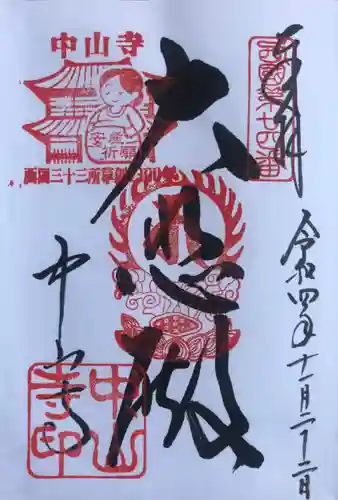 奉拝
西国第廿四番
大悲殿
中山寺
安産
祈願
西国三十三所草創1300年
中山寺
中山
寺印
令和四年十一月二十二日